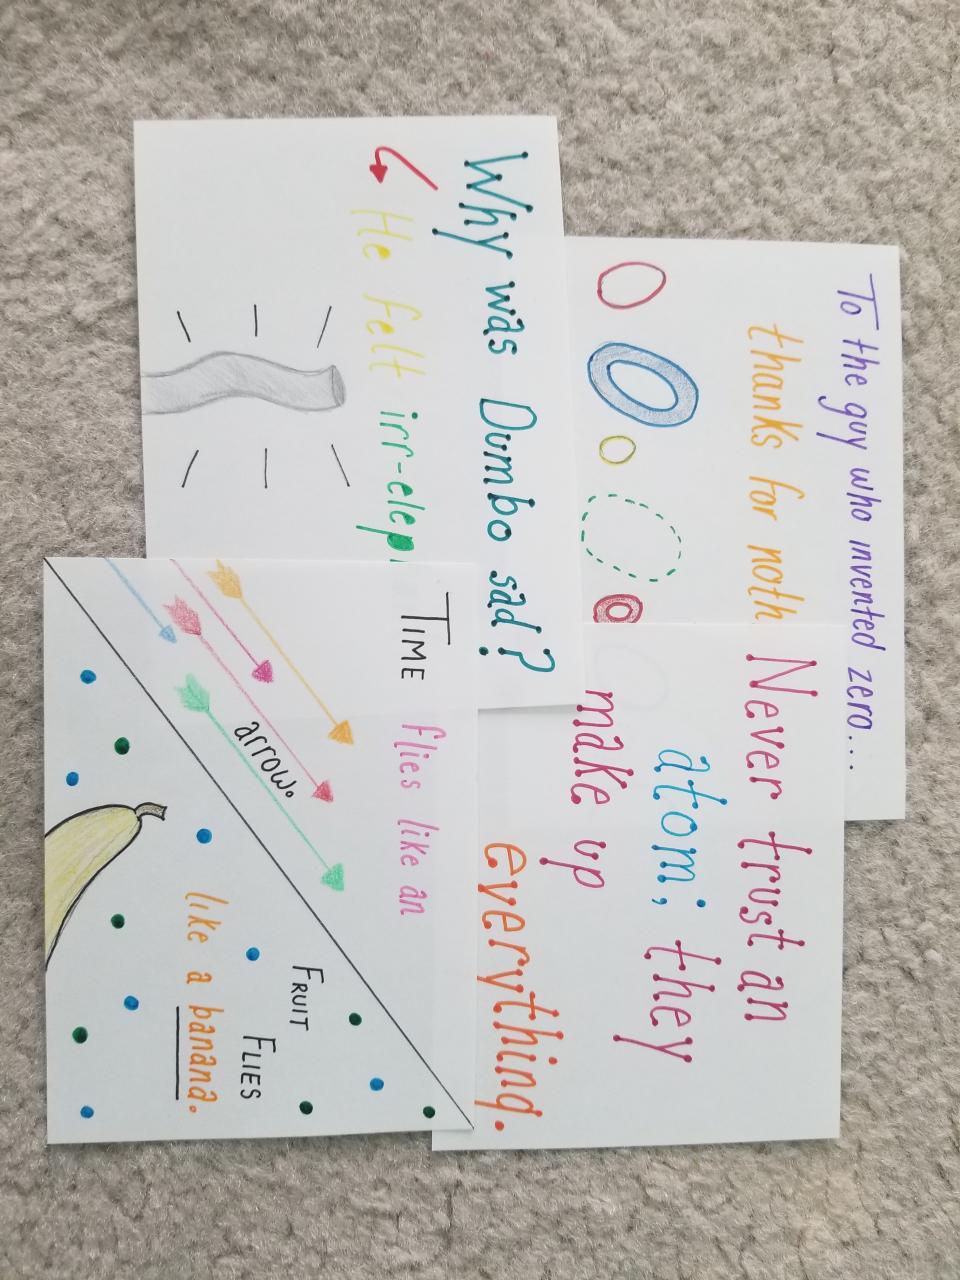 To the guy who invented zero...
thanks for noth
Why was Dumbo sad?
He felt irr-elep
Never trust an
atom; they
make up
everything.
TIME flies like an
arrow.
FRUIT
FLIES
like a banana.